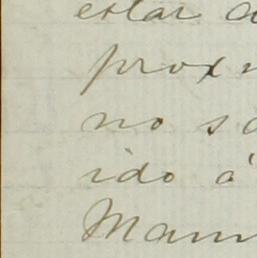 estar
prox
no
ido á
Mam